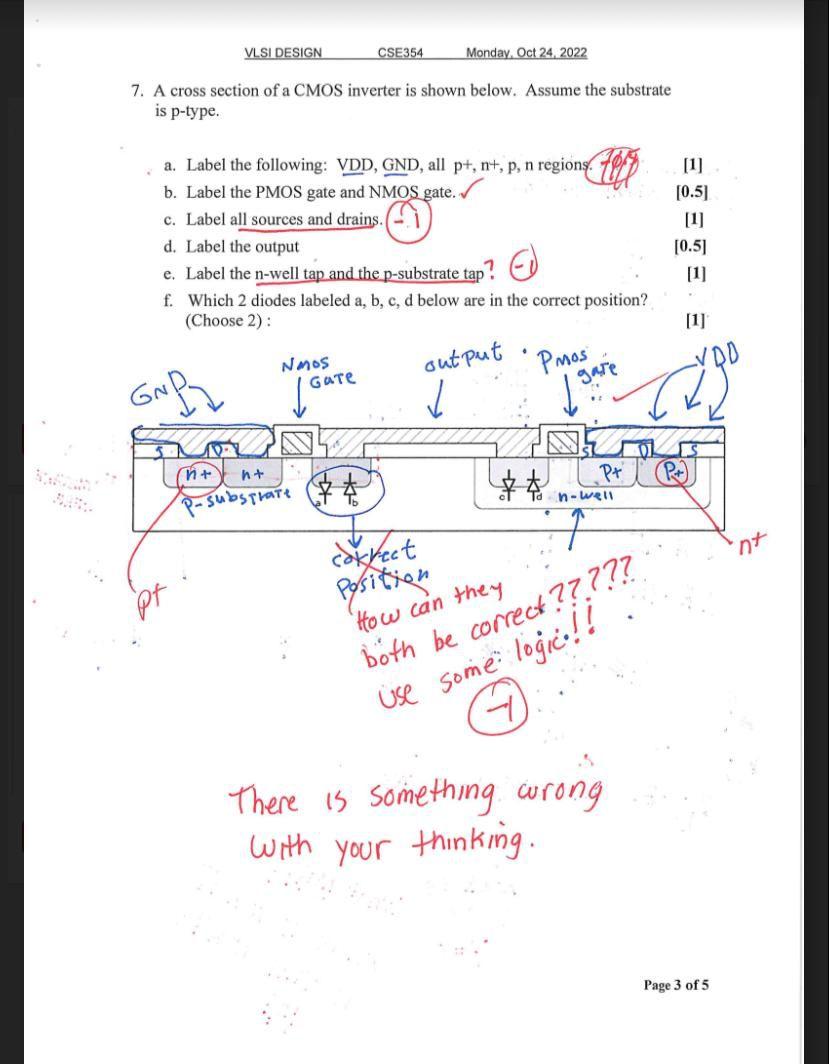 VLSI DESIGN CSE354 Monday, Oct 24, 2022
7. A cross section of a CMOS inverter is shown below. Assume the substrate
is p-type.
a. Label the following: VDD, GND, all p+, n+, p, n regions. [1]
b. Label the PMOS gate and NMOS gate. ✓ [0.5]
c. Label all sources and drains. -1 [1]
d. Label the output [0.5]
e. Label the n-well tap and the p-substrate tap? -1 [1]
f. Which 2 diodes labeled a, b, c, d below are in the correct position?
(Choose 2) : [1]
GND
Nmos
GATE
output
Pmos
gate
VDD
S D S D S
n+ n+ P+ P+
P-substrate a b c d n-well
correct
Position
p+
n+
How can they
both be correct?????
use some logic!!
-1
There is something wrong
with your thinking.
Page 3 of 5